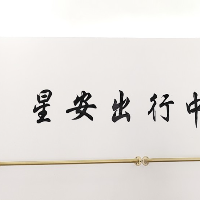 星安出行中